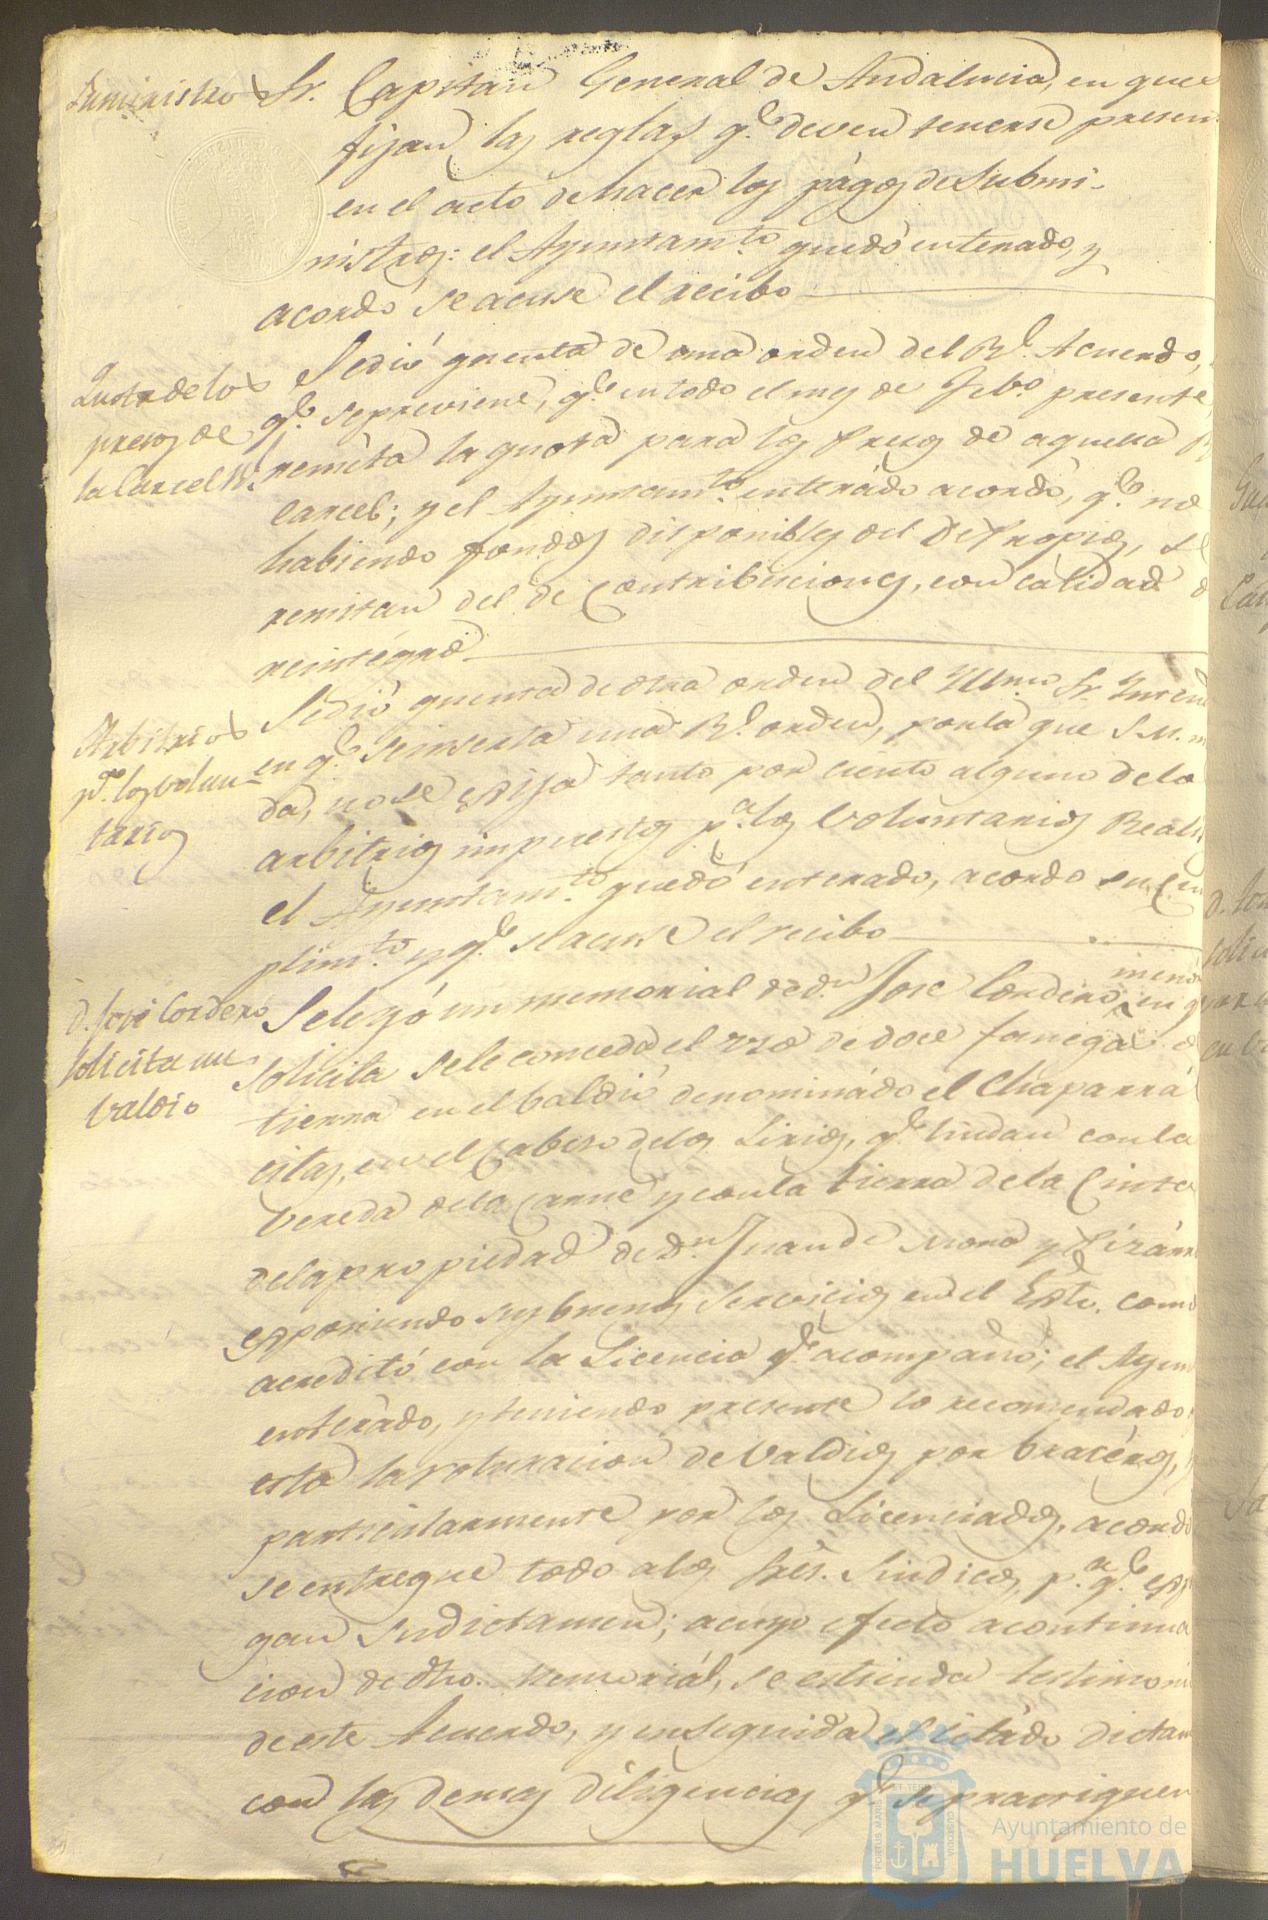 Suministro
Sr. Capitan General de Andalucia, en que
fijan las reglas q.e deven tenerse presen
en el acto de hacer los págos de Submi-
nistros: el Ayuntam.to quedó enterado, y
acordó se acuse el recibo
Quota de los
presos de
la Carcel R.l
Se dió quenta de una orden del R.l Acuerdo,
q.e se previene, q.e en todo el mes de Feb.o presente,
remita la quota para los presos de aquella R
Carcel; y el Ayuntam.to enterádo acordó, q.e no
habiendo fondos disponibles del de Propios, se
remitan del de Contribuciones, con calidad d
reintégro
Arbitrios
p.a los volun-
tarios
Se dió quenta de otra orden del Yllmo Sr. Intend
en q.e se inserta una R.l orden, por la que S.M. m
da, no se exija tanto por ciento alguno de lo
arbitrios impuestos p.a los Voluntarios Reali
el Ayuntam.to quedó enterado, acordó su cum
plim.to y q.e se acuse el recibo
D. José Cordero
solicita un
valdio
Se leyó un memorial de d.n José Cordero menor en q
solicita se le conceda el uso de doce fanegas d
tierra en el baldio denominádo el Chaparrá
citas, en el Cabeso de los Lirios, q.e lindan con la
Vereda de la Carne y con la tierra de la Cinta
de la propiedad de D.n Juan de Mora y Pizárr
exponiendo sus buenos servicios en el Exto. como
acreditó con la Licencia q.e acompañó; el Ayun
enterádo, y teniendo presente lo recomendado
está la roturacion de Valdios por bracéros, y
particularmente por los Licenciados, acordó
se entregue todo a los Sres. Sindicos, p.a q.e exp
gan su dictamen; a cuyo efecto a continua
cion de dho. Memoriál, se estienda testimoni
de este Acuerdo, y enseguida el citádo dictam
con las demas diligencias q.e se practiquen
Ayuntamiento de
HUELVA